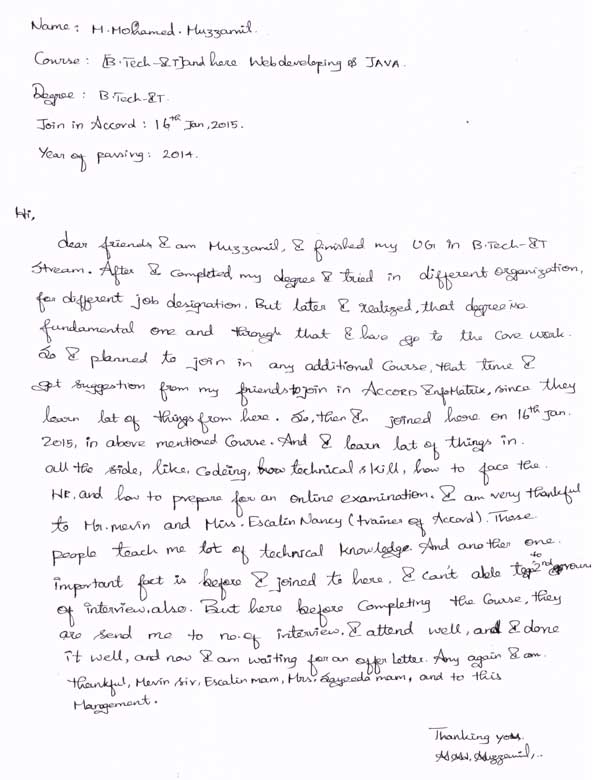 Name: M.Mohamed.Muzzamil.
Course: [B.Tech-IT] and here Webdeveloping of JAVA.
Degree: B.Tech-IT.
Join in Accord: 16th Jan, 2015.
Year of passing: 2014.
Hi,
dear friends I am Muzzamil, I finished my UG in B.Tech-IT
Stream. After I completed, my degree I tried in different organization,
for different job designation. But later I realized, that degree is
fundamental one and through that I have go to the core work.
So I planned to join in any additional Course, that time I
got suggestion from my friends to join in Accord InfoMatrix, since they
learn lat of things from here. So, then I joined here on 16th Jan.
2015, in above mentioned Course. And I learn lat of things in.
all the side, like, Codeing, technical skill, how to face the.
HR, and how to prepare for an online examination. I am very thankful
to Mr. Mevin and Miss. Escalin Nancy (trainer of Accord). These
people teach me lot of technical knowledge. And another one.
important fact is before I joined to here, I can't able to 2nd round
of interview, also. But here before Completing the Course, they
are send me to no. of interview. I attend well, and I done
it well, and now I am waiting for an offer letter. Any again I am.
thankful, Mevin sir, Escalin mam, Mrs. Sayeeda mam, and to this
Mangement.
Thanking you.
Muzzamil,..